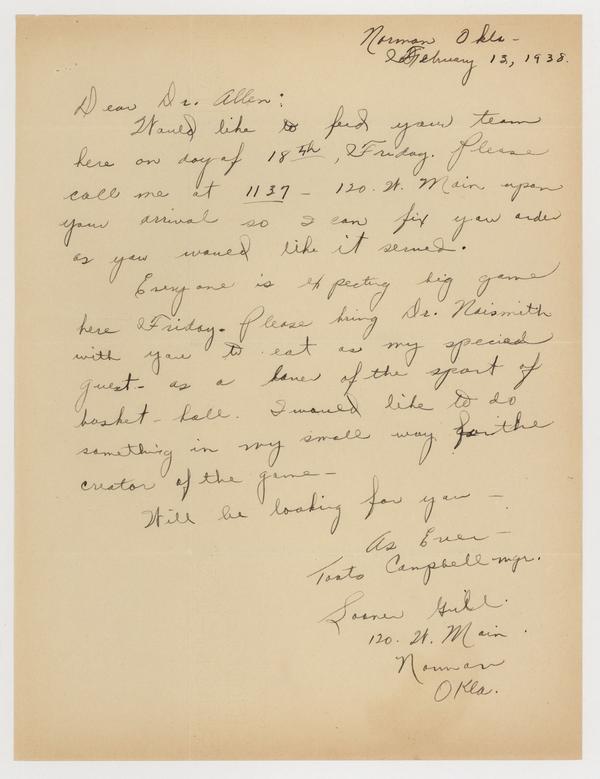 Norman Okla -
February 13, 1938.
Dear Dr. Allen:
Would like to feed your team
here on day of 18th, Friday. Please
call me at 1137 - 120. W. Main upon
your arrival so I can fix your order
as you would like it served.
Everyone is expecting big game
here Friday. Please bring Dr. Naismith
with you to eat as my special
guest - as a lover of the sport of
basket-ball. I would like to do
something in my small way for the
creator of the game -
Will be looking for you -
As Ever -
Toots Campbell - mgr.
Sooner Grill.
120. W. Main.
Norman
Okla.